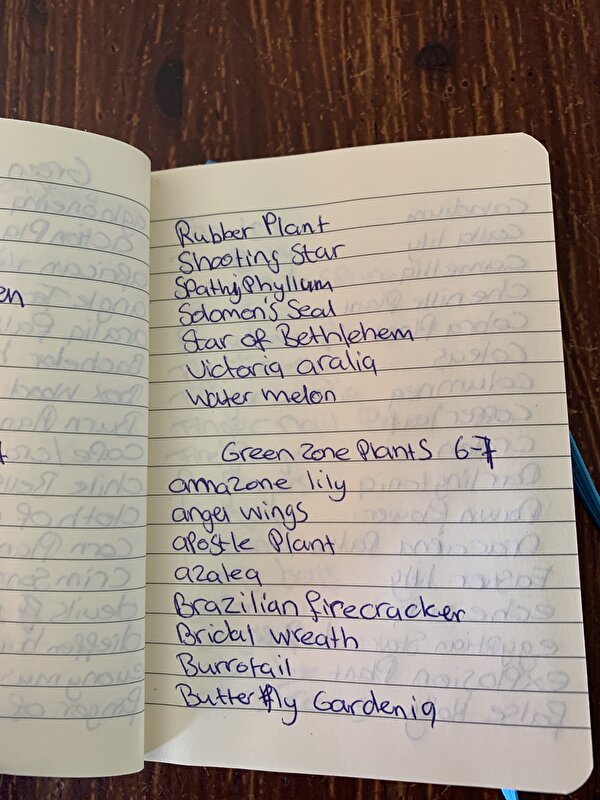 Rubber Plant
Shooting Star
Spathiphyllum
Solomon's Seal
Star of Bethlehem
Victoria aralia
water melon
Green Zone Plants 6-7
amazone lily
angel wings
apostle Plant
azalea
Brazilian firecracker
Bridal wreath
Burrotail
Butterfly Gardenia